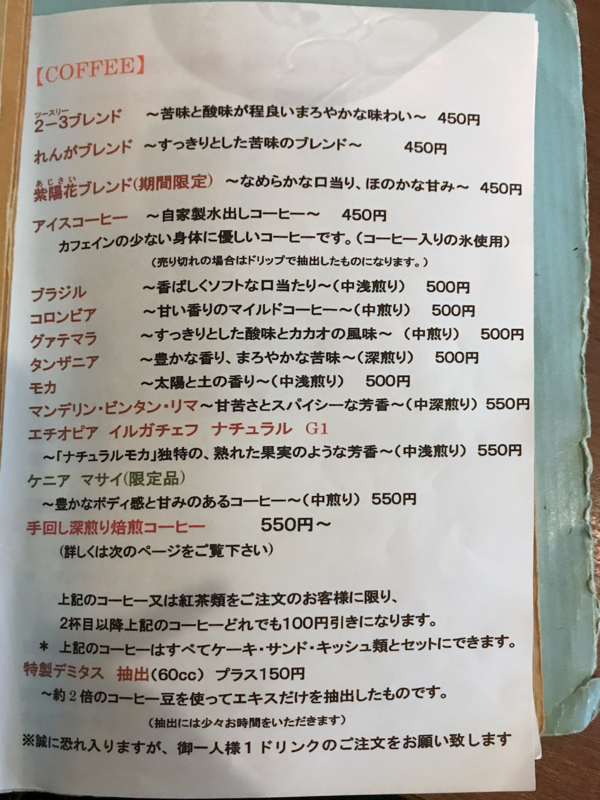 【COFFEE】
ツースリー
2−3ブレンド　～苦味と酸味が程良いまろやかな味わい～　450円
れんがブレンド　～すっきりとした苦味のブレンド～　450円
あじさい
紫陽花ブレンド(期間限定)　～なめらかな口当り、ほのかな甘み～　450円
アイスコーヒー　～自家製水出しコーヒー～　450円
カフェインの少ない身体に優しいコーヒーです。(コーヒー入りの氷使用)
(売り切れの場合はドリップで抽出したものになります。)
ブラジル　～香ばしくソフトな口当たり～(中浅煎り)　500円
コロンビア　～甘い香りのマイルドコーヒー～(中煎り)　500円
グァテマラ　～すっきりとした酸味とカカオの風味～(中煎り)　500円
タンザニア　～豊かな香り、まろやかな苦味～(深煎り)　500円
モカ　～太陽と土の香り～(中浅煎り)　500円
マンデリン・ビンタン・リマ～甘苦さとスパイシーな芳香～(中深煎り)　550円
エチオピア　イルガチェフ　ナチュラル　G1
～「ナチュラルモカ」独特の、熟れた果実のような芳香～(中浅煎り)　550円
ケニア　マサイ(限定品)
～豊かなボディ感と甘みのあるコーヒー～(中煎り)　550円
手回し深煎り焙煎コーヒー　550円～
(詳しくは次のページをご覧下さい)
上記のコーヒー又は紅茶類をご注文のお客様に限り、
2杯目以降上記のコーヒーどれでも100円引きになります。
＊ 上記のコーヒーはすべてケーキ・サンド・キッシュ類とセットにできます。
特製デミタス　抽出(60cc)　プラス150円
～約2倍のコーヒー豆を使ってエキスだけを抽出したものです。
(抽出には少々お時間をいただきます)
※誠に恐れ入りますが、御一人様1ドリンクのご注文をお願い致します